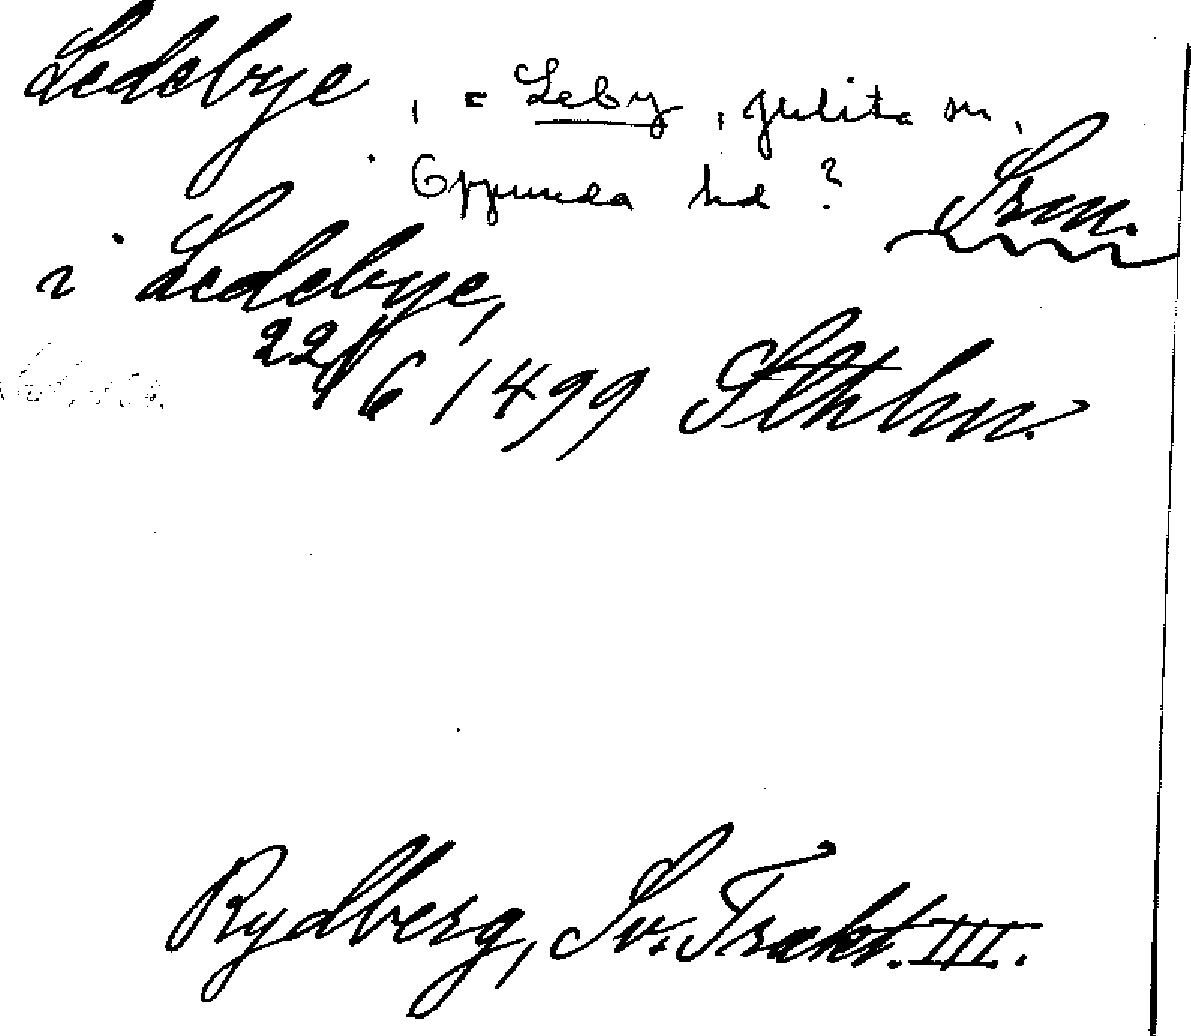 Ledebye, = Leby, Julita sn,
Oppunda hd ? Srm.
i Ledebye,
22/6 1499 Sthlm.
Rydberg, Sv. Trakt. III.